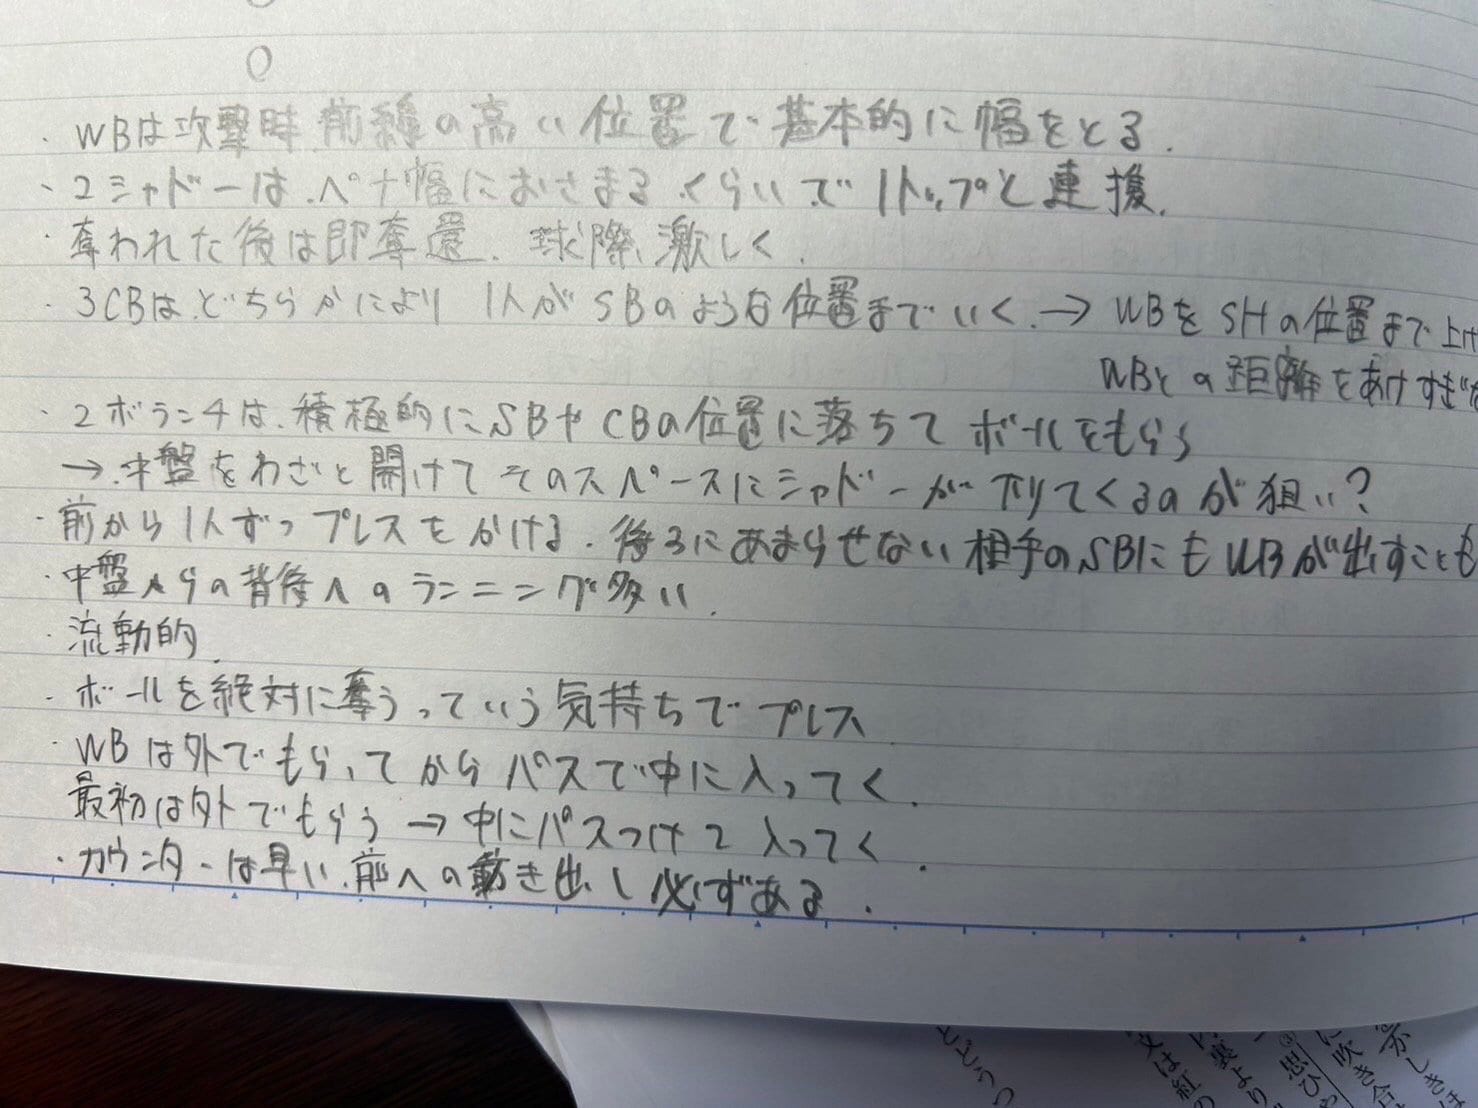 ・WBは攻撃時.前線の高い位置で基本的に幅をとる.
・2シャドーは.ペナ幅におさまるくらいで1トップと連携.
・奪われた後は即奪還.球際激しく.
・3CBは.どちらかにより1人がSBのような位置までいく.→WBをSHの位置まで上げ
WBとの距離をあけすぎ
・2ボランチは.積極的にSBやCBの位置に落ちてボールをもらう
→.中盤をわざと開けてそのスペースにシャドーが下りてくるのが狙い?
・前から1人ずつプレスをかける.後ろにあまらせない相手のSBにもWBが出すことも
・中盤からの背後へのランニング多い.
・流動的.
・ボールを絶対に奪うっていう気持ちでプレス.
・WBは外でもらってからパスで中に入ってく.
最初は外でもらう→中にパスつけて入ってく.
・カウンターは早い.前への動き出し必ずある.